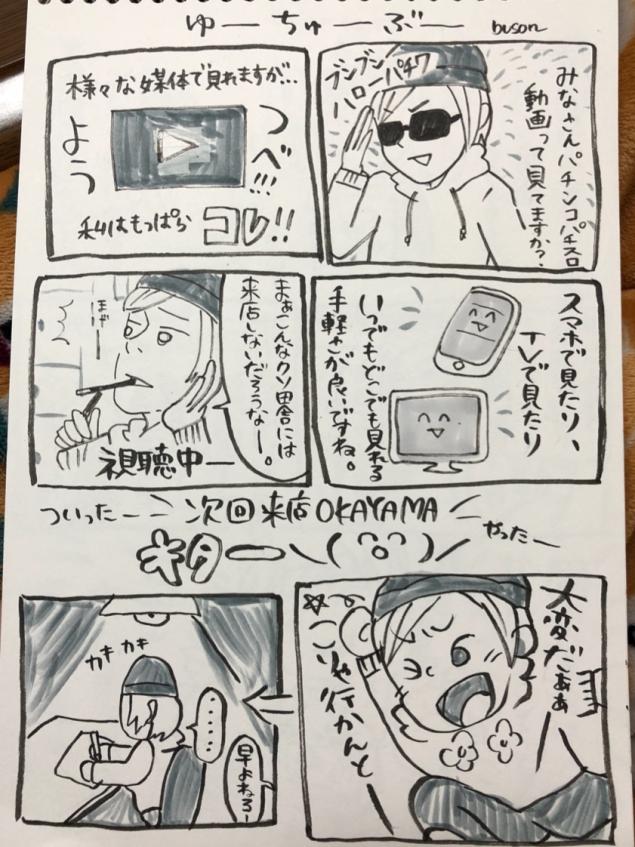 ゆーちゅーぶー
buson
ブンブン
ハローパチワ
みなさんパチンコパチスロ
動画って見てますか？
様々な媒体で見れますが…
つべ!!!
よう
私はもっぱら
コレ!!
スマホで見たり、
TVで見たり
いつでもどこでも見れる
手軽さが良いですね。
まぁこんなクソ田舎には
来店しないだろうなー。
まぎー
視聴中ー
ついったー
次回来店OKAYAMA
やったー
キター＼(^o^)／
大変だぁぁ
こりゃ行かんと
カキカキ
・・・・
早よねろー